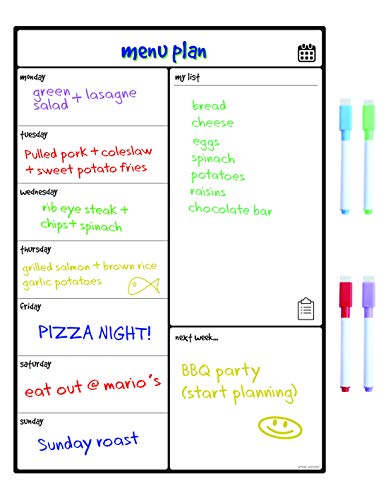 menu plan
monday
green
salad + lasagne
tuesday
Pulled pork + coleslaw
+ sweet potato fries
wednesday
rib eye steak +
chips + spinach
thursday
grilled salmon + brown rice
garlic potatoes
friday
PIZZA NIGHT!
saturday
eat out @ mario's
sunday
Sunday roast
my list
bread
cheese
eggs
spinach
potatoes
raisins
chocolate bar
next week...
BBQ party
(start planning)